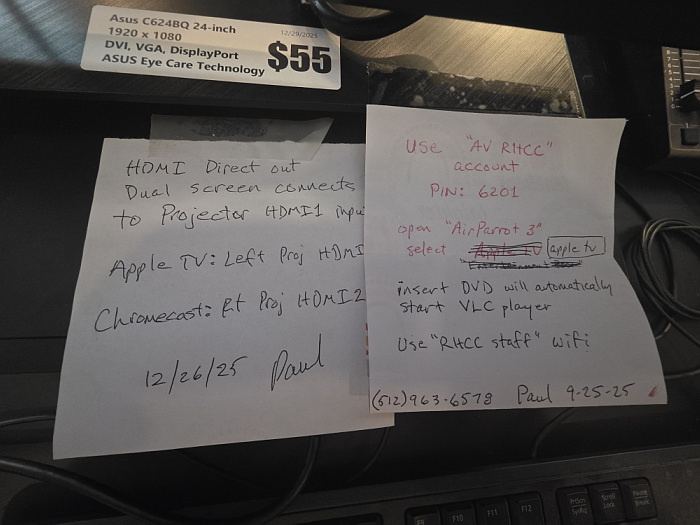 Asus C624BQ 24-inch
1920 x 1080
DVI, VGA, DisplayPort
ASUS Eye Care Technology
12/29/2025
$55
HDMI Direct out
Dual screen connects
to Projector HDMI1 inpu
Apple TV: Left Proj HDMI
Chromecast: Rt Proj HDMI2
12/26/25 Paul
Use "AV RHCC"
account
PIN: 6201
open "AirParrot 3"
select Apple TV apple tv
insert DVD will automatically
start VLC player
Use "RHCC staff" wifi
(512)963-6578 Paul 9-25-25
F10
F11
F12
PrtScn
SysRq
Scroll
Lock
Pause
Break